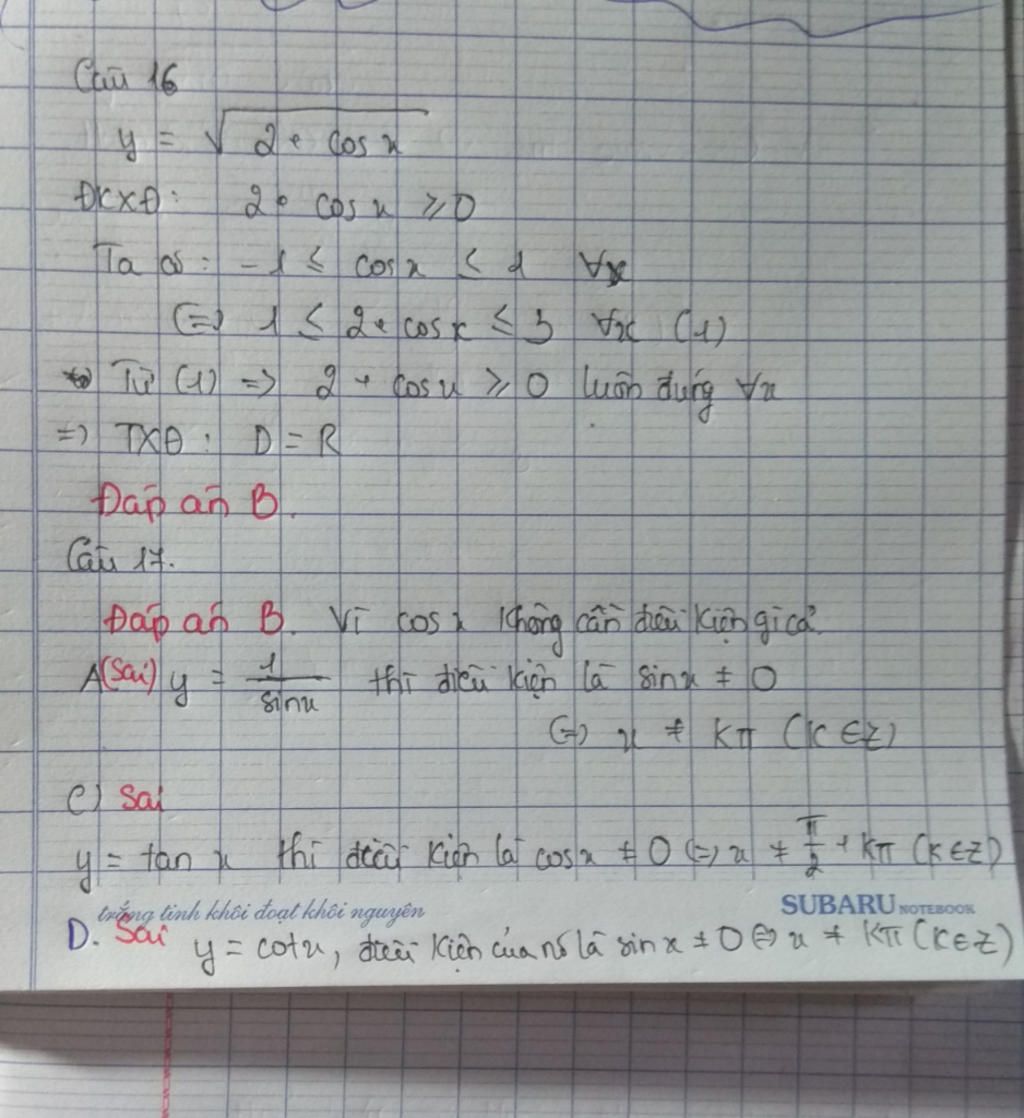 Câu 16
y = √(2 + cos x)
ĐKXĐ: 2 + cos x ≥ 0
Ta có: -1 ≤ cos x ≤ 1 ∀x
(=) 1 ≤ 2 + cos x ≤ 3 ∀x (1)
Từ (1) => 2 + cos x ≥ 0 luôn đúng ∀x
=) TXĐ: D = R
Đáp án B.
Câu 17.
Đáp án B. Vì cos x không cần điều kiện gì cả.
A(Sai) y = 1/sin x thì điều kiện là sin x ≠ 0
(=) x ≠ kπ (k ∈ Z)
C) Sai
y = tan x thì điều kiện là cos x ≠ 0 (=) x ≠ π/2 + kπ (k ∈ Z)
trắng tinh khôi đoạt khôi nguyên SUBARU NOTEBOOK
D. Sai y = cot x, điều kiện của nó là sin x ≠ 0 (=) x ≠ kπ (k ∈ Z)